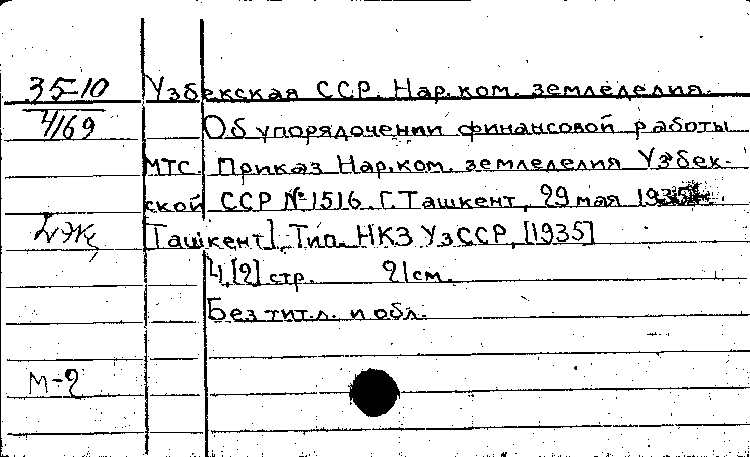 35-10 Узбекская ССР. Нар.ком. земледелия.
4169 Об упорядочении финансовой работы
МТС. Приказ Нар.ком. земледелия Узбек-
ской ССР №1516. Г. Ташкент, 29 мая 1935
[Ташкент], Тип. НКЗ УзССР, [1935]
4,[2] стр. 21 см.
Без тит.л. и обл.
М-2